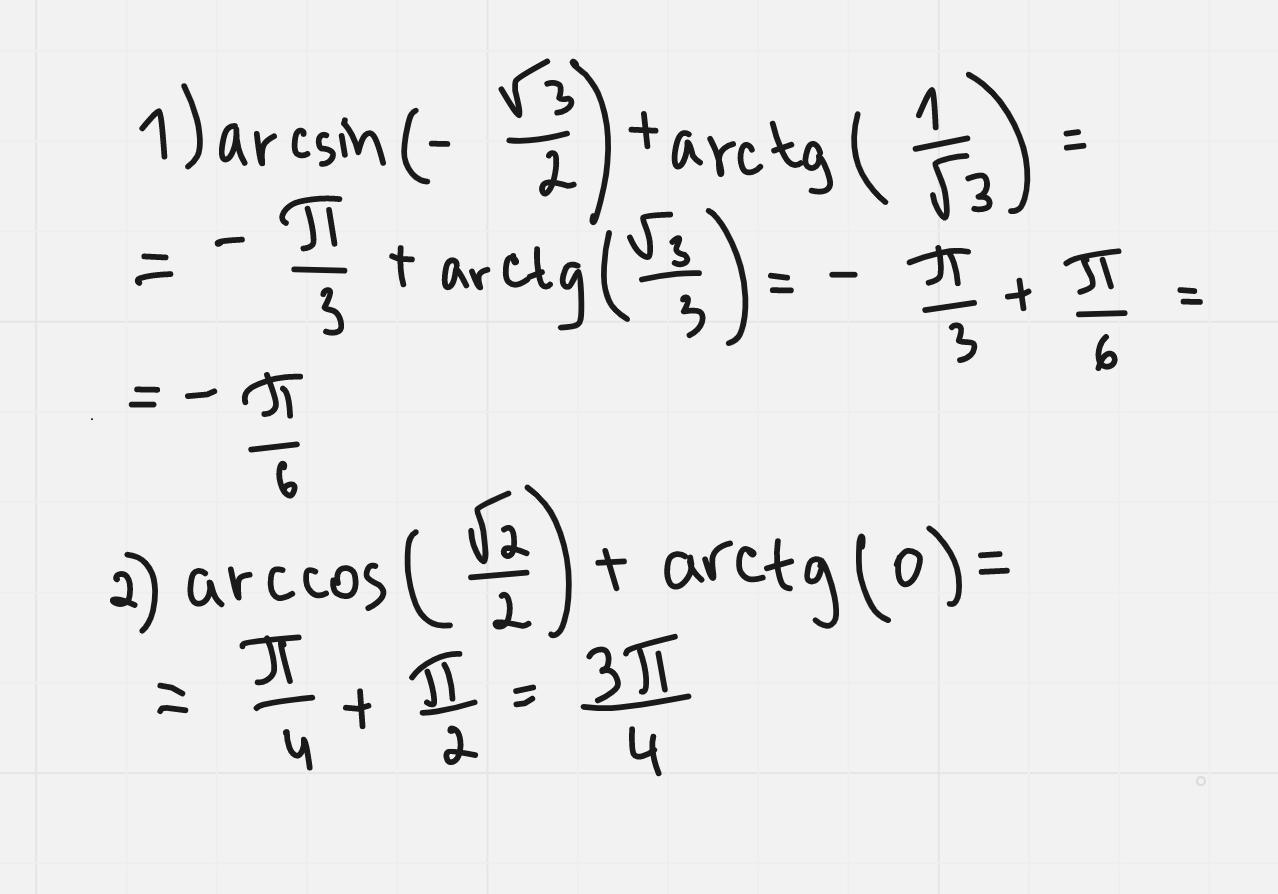 1) arcsin(-√3/2) + arctg(1/√3) =
= -π/3 + arctg(√3/3) = -π/3 + π/6 =
= -π/6
2) arccos(√2/2) + arctg(0) =
= π/4 + π/2 = 3π/4